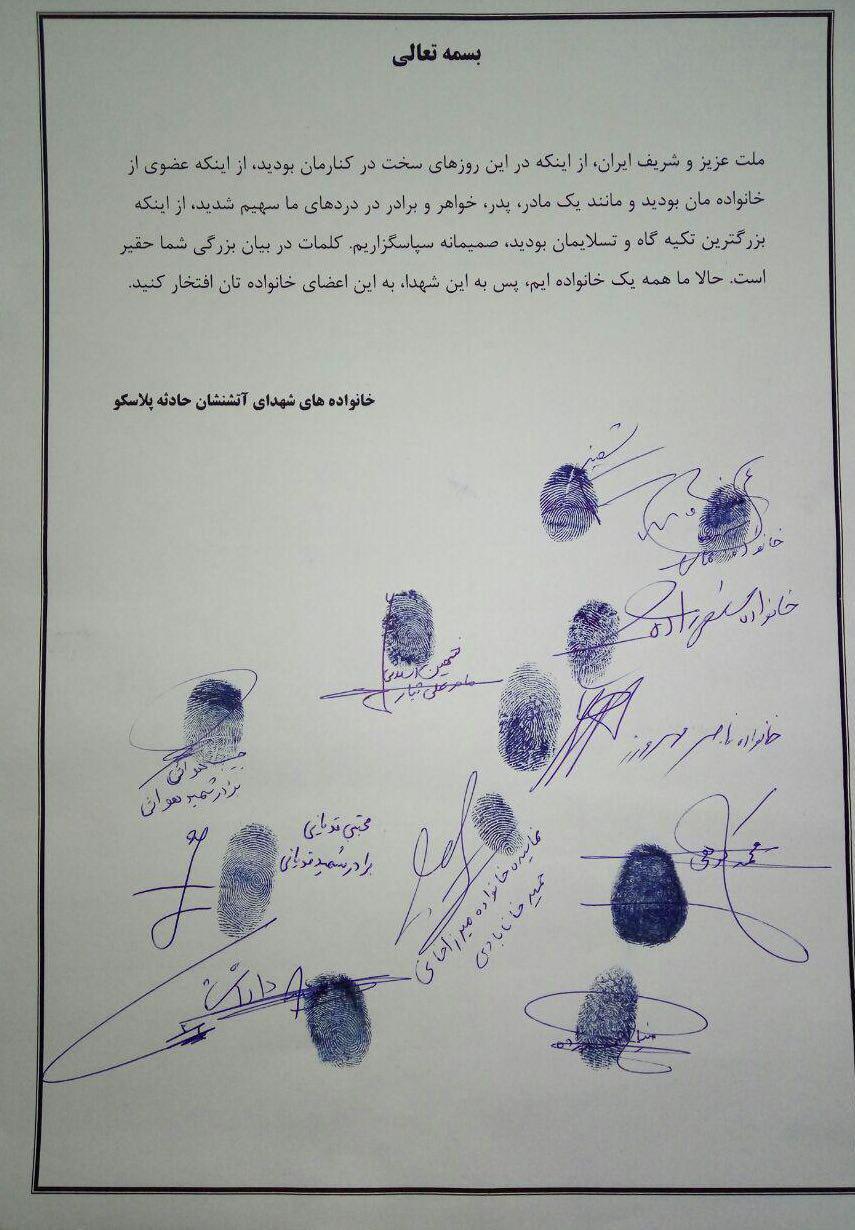 بسمه تعالی
ملت عزیز و شریف ایران، از اینکه در این روزهای سخت در کنارمان بودید، از اینکه عضوی از
خانواده مان بودید و مانند یک مادر، پدر، خواهر و برادر در دردهای ما سهیم شدید، از اینکه
بزرگترین تکیه گاه و تسلایمان بودید، صمیمانه سپاسگزاریم. کلمات در بیان بزرگی شما حقیر
است. حالا ما همه یک خانواده ایم، پس به این شهدا، به این اعضای خانواده تان افتخار کنید.
خانواده های شهدای آتشنشان حادثه پلاسکو
خانواده
خانواده سلطی زاده
خانواده ناصر مهرورز
هوائی
برادر شهید هوائی
مجتبی قدیانی
برادر شهید قدیانی
نماینده خانواده میرزاخانی
حمید خانابادی
محمد